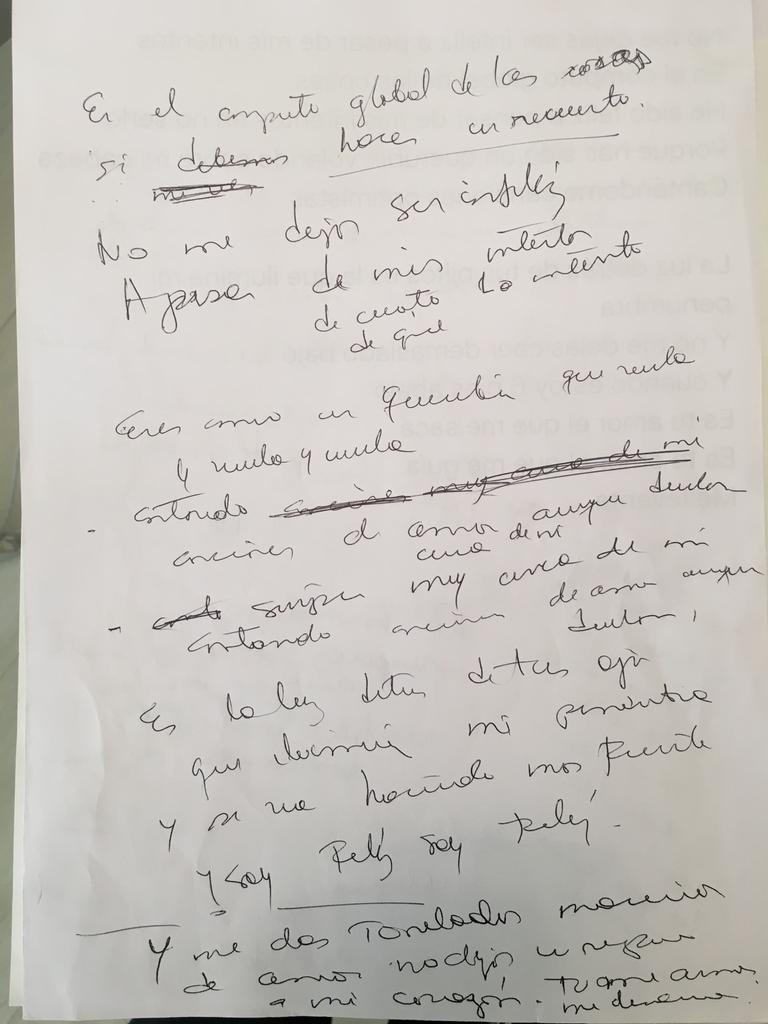 En el computo global de las cosas
si debemos hacer un recuento.
No me dejas ser infeliz
A pesar de mis intentos
de cuanto lo intento
de que
Eres como un Querubín que vuela
y vuela y vuela
- cantando canciones muy cerca de mi
canciones de amor aunque duelan
cerca de mi
- siempre muy cerca de mi
cantando canciones de amor aunque
duelan,
Es la luz detras de tus ojos
que ilumina mi penumbra
Y se va haciendo mas fuerte
Y soy Feliz soy Feliz.
Y me das Toneladas
de amor no dejas
a mi corazón - tu